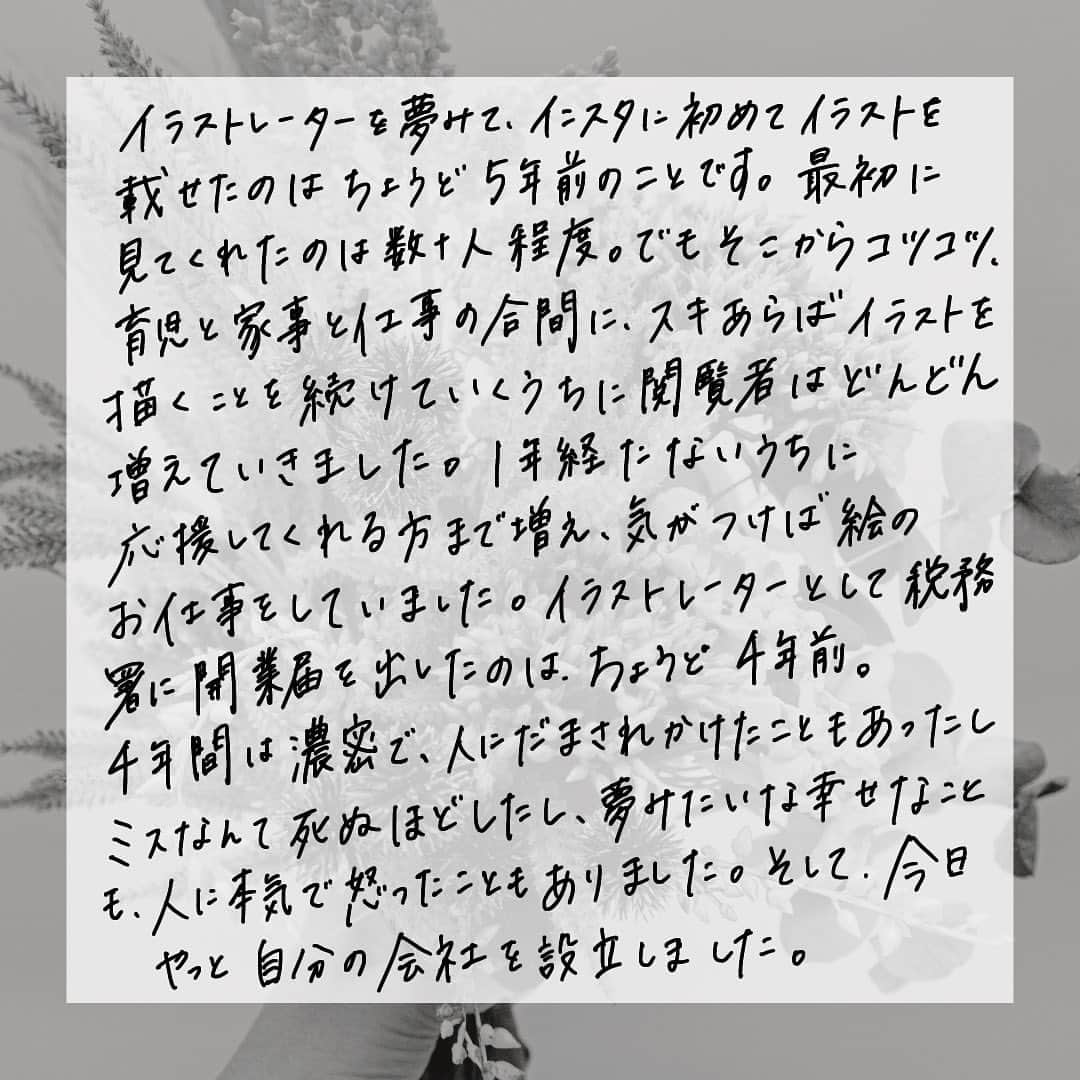 イラストレーターを夢みて、インスタに初めてイラストを
載せたのはちょうど5年前のことです。最初に
見てくれたのは数十人程度。でもそこからコツコツ、
育児と家事と仕事の合間に、スキあらばイラストを
描くことを続けていくうちに閲覧者はどんどん
増えていきました。1年経たないうちに
応援してくれる方まで増え、気がつけば絵の
お仕事をしていました。イラストレーターとして税務
署に開業届を出したのは、ちょうど4年前。
4年間は濃密で、人にだまされかけたこともあったし
ミスなんて死ぬほどしたし、夢みたいな幸せなこと
も、人に本気で怒ったこともありました。そして、今日
やっと自分の会社を設立しました。